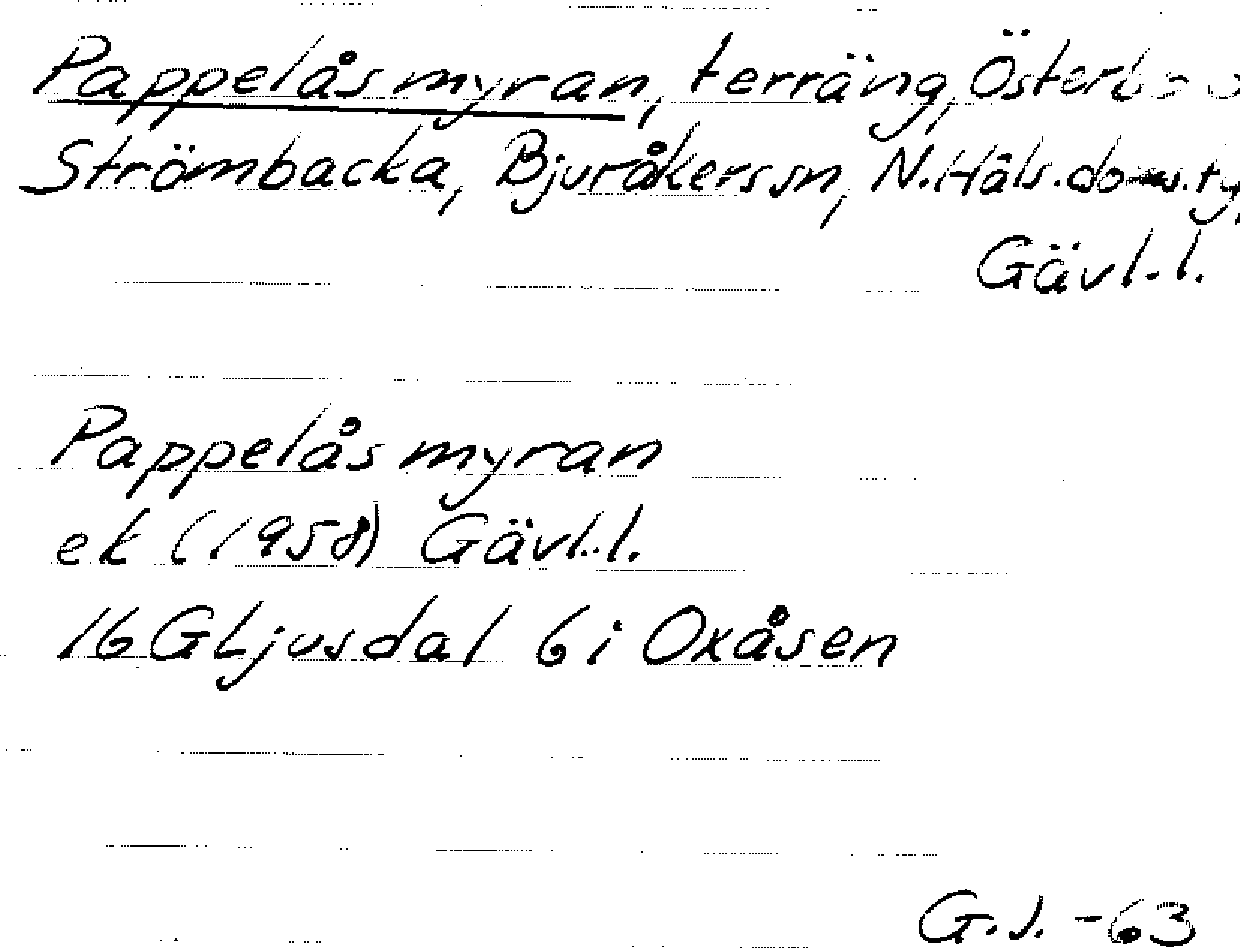 Pappelåsmyran, terräng,
Strömbacka, Bjuråkerssn, N.Häls.doms.ty,
Gävl.l.
Pappelåsmyran
ek (1958) Gävl.l.
16G Ljusdal 6i Oxåsen
G.J. -63